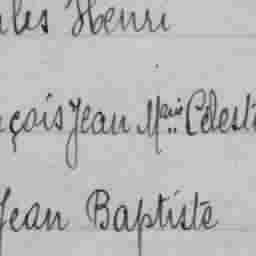 les Henri
nçois Jean Mie Célest
Jean Baptiste